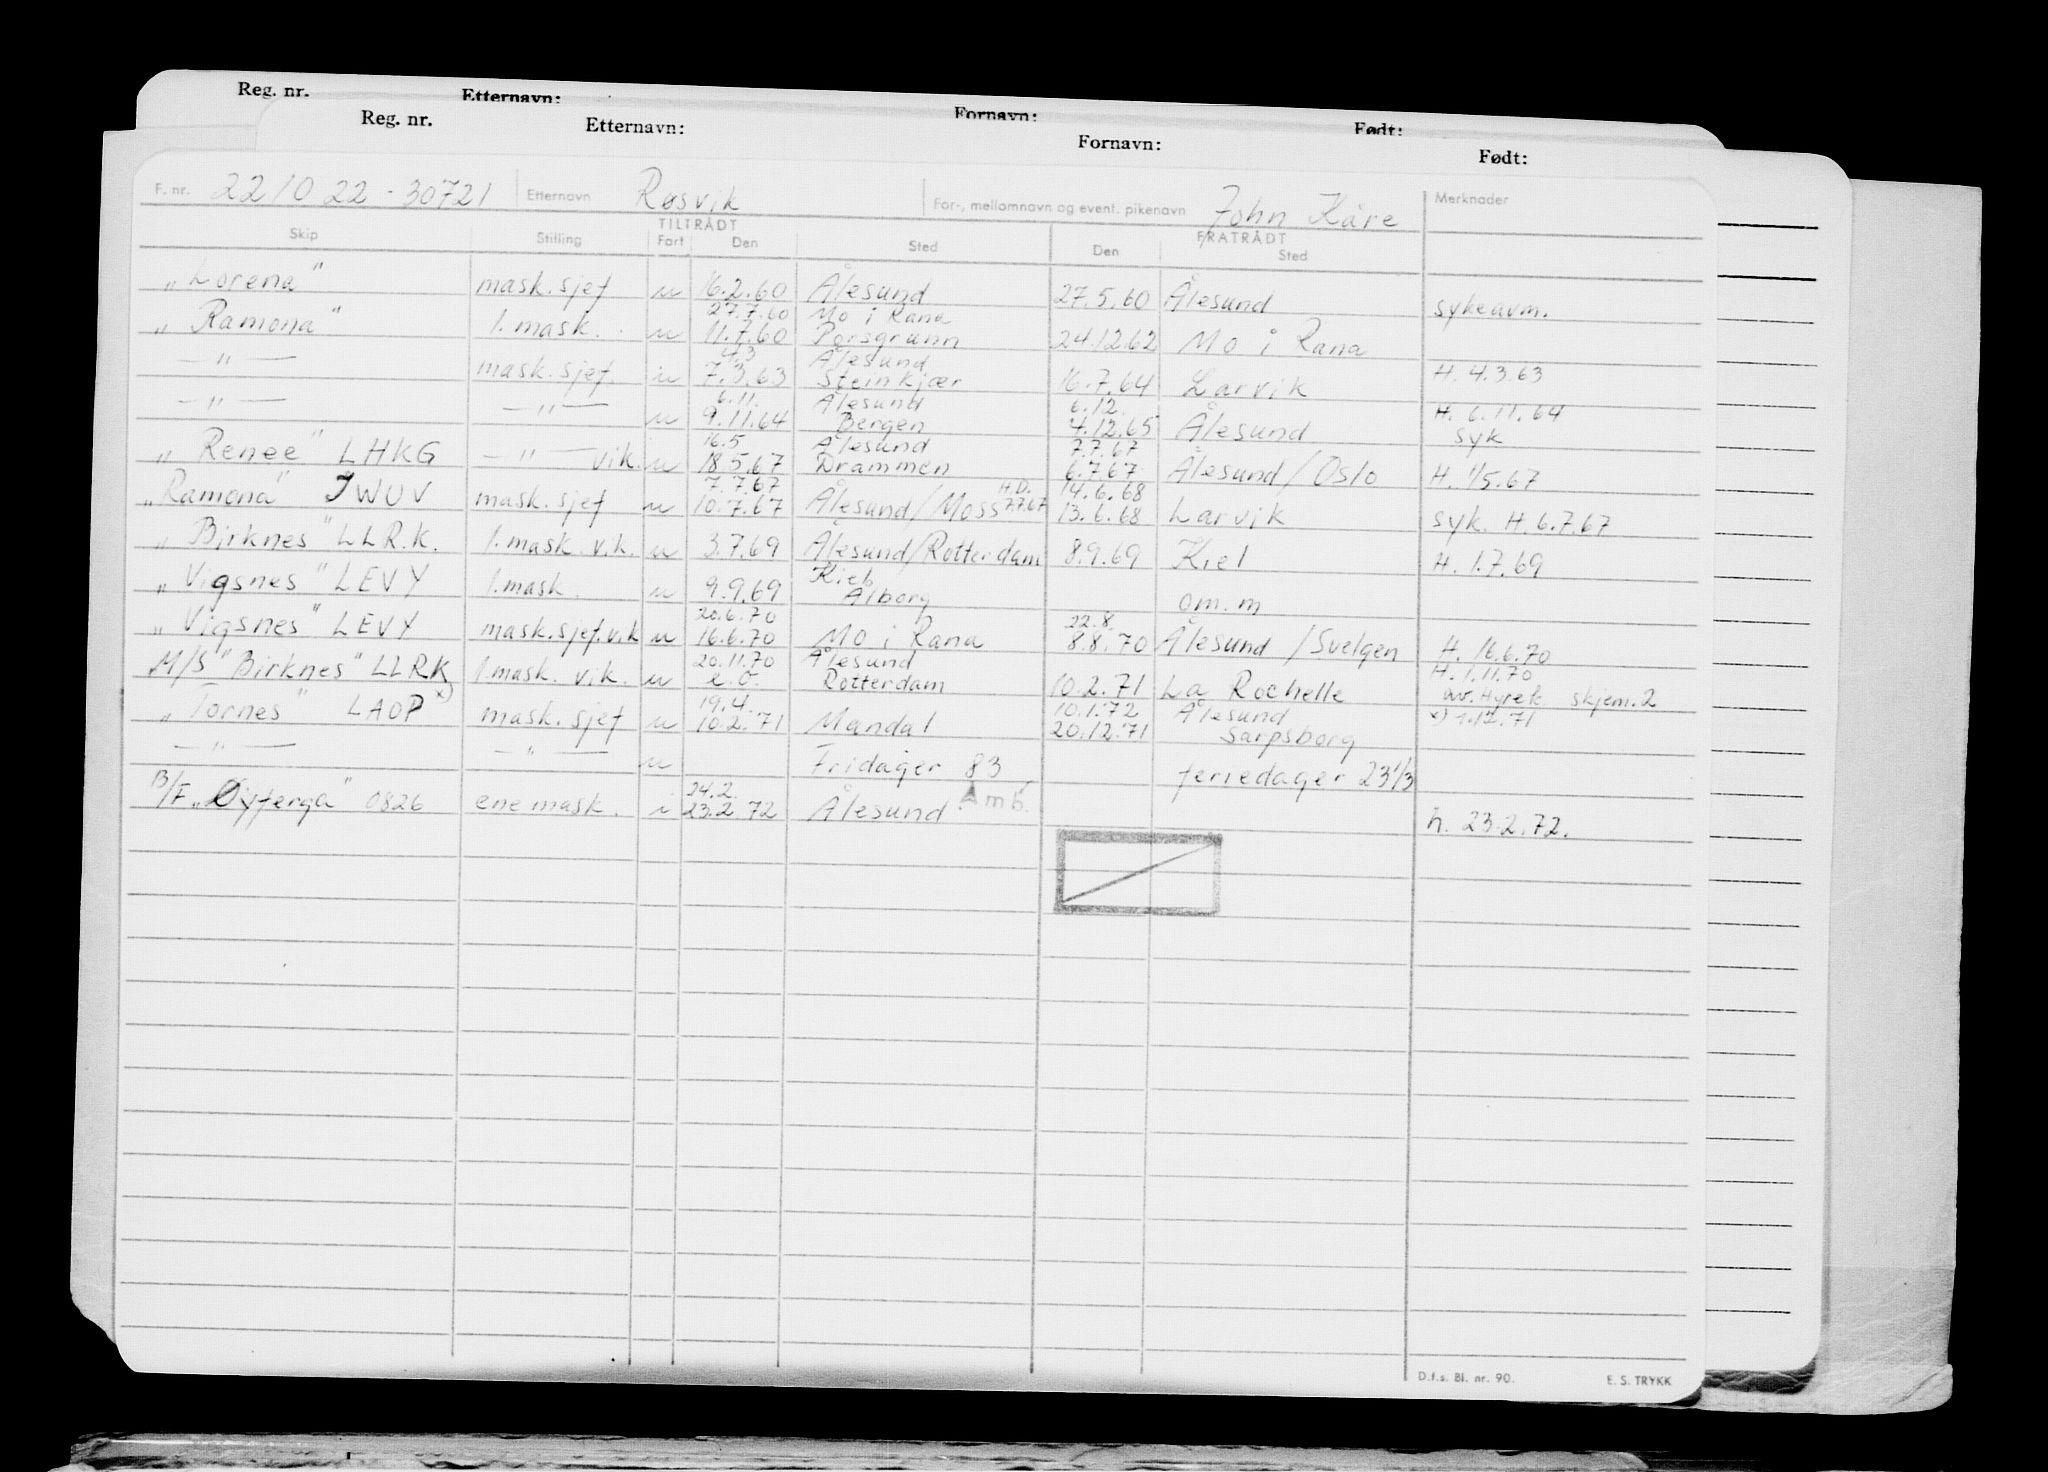 Reg. nr. Etternavn: Fornavn: Født:
Reg. nr. Etternavn: Fornavn: Født:
F. nr. 221022-30721 Etternavn Røsvik For-, mellomnavn og event. pikenavn John Kåre Merknader
TILTRÅDT FRATRÅDT
Skip Stilling Fart Den Sted Den Sted
„Lorena" mask.sjef u 16.2.60 Ålesund 27.5.60 Ålesund sykeavm.
27.7.60 Mo i Rana
„Ramona" 1. mask. u 11.7.60 Porsgrunn 24.12.62 Mo i Rana
4.3 Ålesund
—"— mask.sjef. u 7.3.63 Steinkjær 16.7.64 Larvik H. 4.3.63
6.11. Ålesund 6.12. H. 6.11.64
—"— —"— u 9.11.64 Bergen 4.12.65 Ålesund syk
16.5 Ålesund 7.7.67
„Renee" LHKG —"— vik. u 18.5.67 Drammen 6.7.67 Ålesund/Oslo H. 1/5.67
7.7.67 H.D. 14.6.68
„Ramona" JWUV mask.sjef u 10.7.67 Ålesund/Moss 7.7.67 13.6.68 Larvik syk. H. 6.7.67
„Birknes" LLR.K. 1. mask. vik. u 3.7.69 Ålesund/Rotterdam 8.9.69 Kiel H. 1.7.69
Kiel
„Vigsnes" LEVY 1. mask. u 9.9.69 Ålborg om. m
20.6.70 22.8.
„Vigsnes" LEVY mask.sjef.vik u 16.6.70 Mo i Rana 8.8.70 Ålesund/Svelgen H. 16.6.70
20.11.70 Ålesund H. 1.11.70
M/S "Birknes" LLRK 1. mask. vik. u e.o. Rotterdam 10.2.71 La Rochelle av. Hyrek skjem.2
19.4. 10.1.72 Ålesund x) 1.12.71
„Tornes" LAOP x) mask. sjef u 10.2.71 Mandal 20.12.71 Sarpsborg
—"— —"— u Fridager 83 feriedager 23 1/3
24.2. Åmb.
B/F „Øyferga" 0826 ene mask. i 23.2.72 Ålesund h. 23.2.72.
D.f.s. Bl. nr. 90. E. S. TRYKK